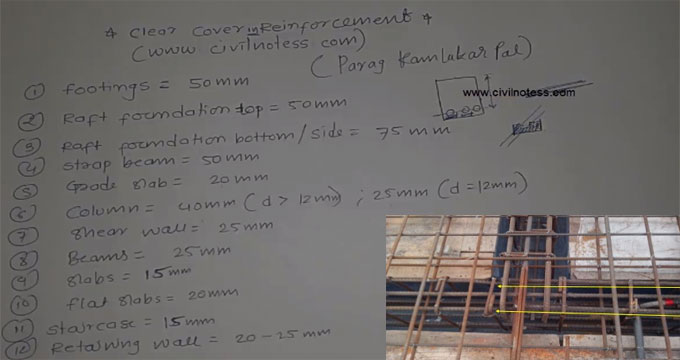 * Clear Cover in Reinforcement *
(www civilnotess com)
(Parag Kamlakar Pal)
① footings = 50mm
② Raft foundation top = 50mm
③ Raft foundation bottom/side = 75mm
④ Strap beam = 50mm
⑤ Grade slab = 20mm
⑥ Column = 40mm (d > 12mm) ; 25mm (d = 12mm)
⑦ Shear wall = 25mm
⑧ Beams = 25mm
⑨ Slabs = 15mm
⑩ flat slabs = 20mm
⑪ Staircase = 15mm
⑫ Retaining wall = 20-25mm
www.civilnotess.com